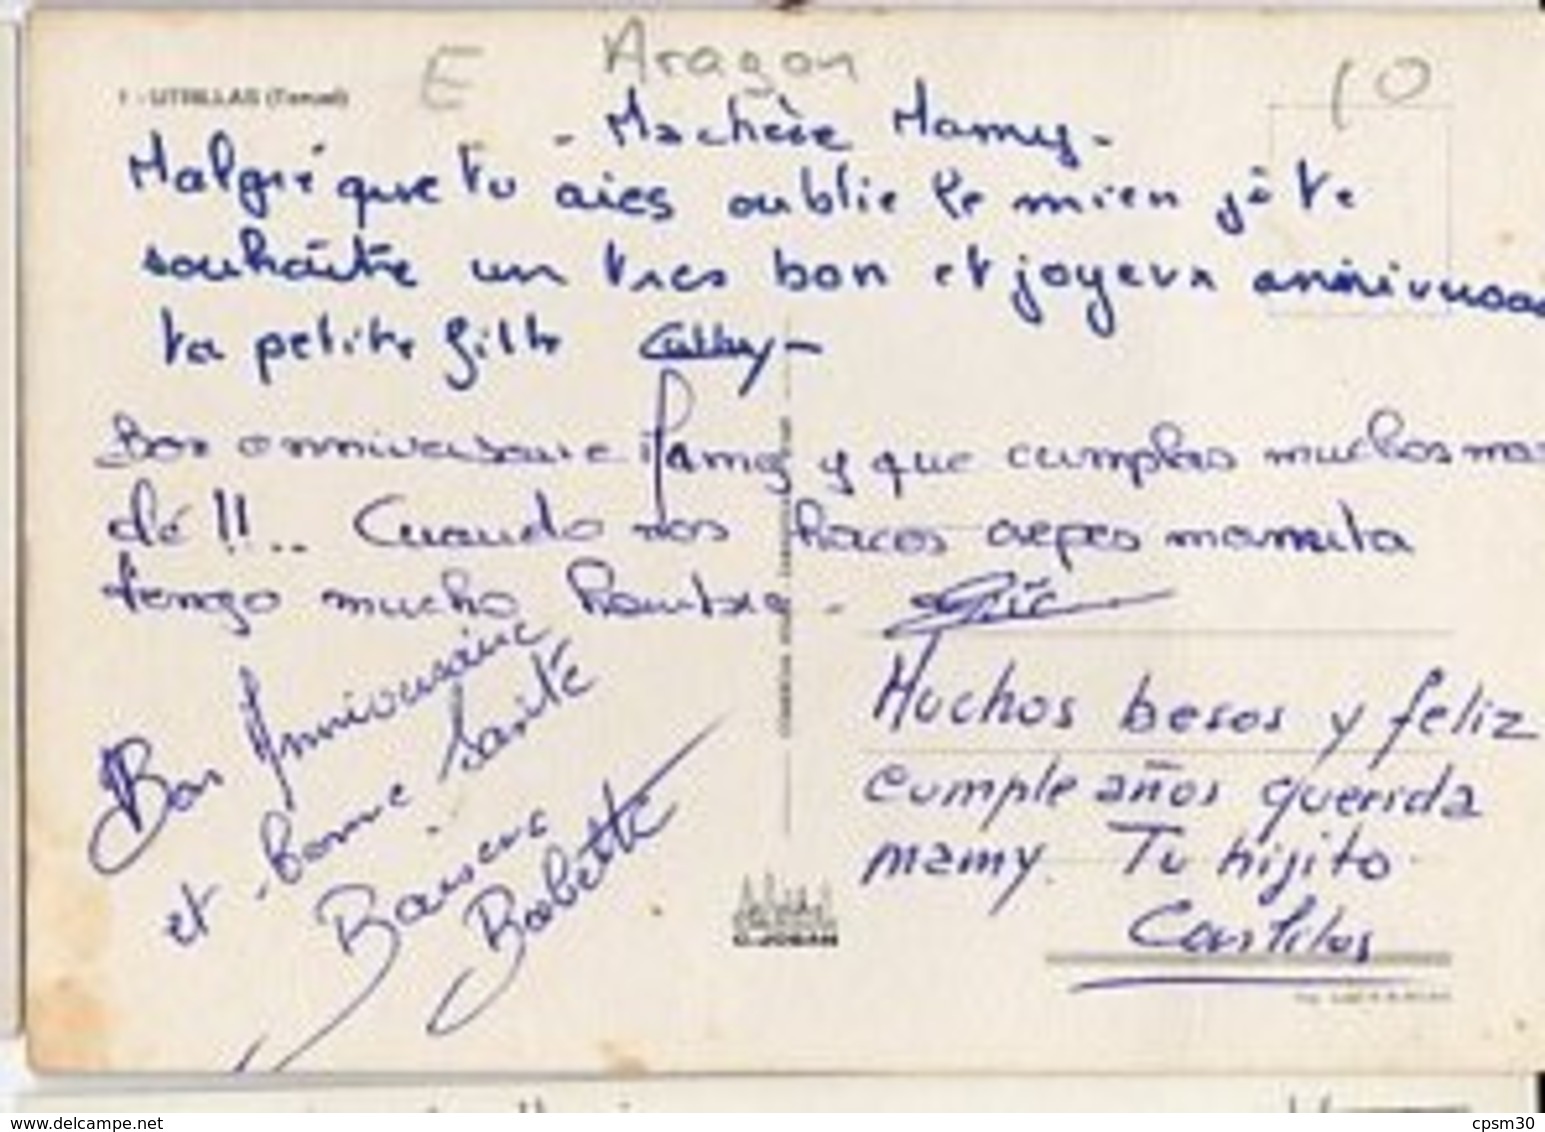 E Aragon 10
1 - UTRILLAS (Teruel)
- Ma chère Mamy -
Malgré que tu aies oublie le mien je te
souhaite un tres bon et joyeux anniversai
ta petite fille Cathy -
Bon anniversaire Mamy y que cumplas muchos mas
olé!!.. Cuando nos haces crepes mamita
tengo mucho hambre - Eric
Bon Anniversaire
et bonne santé
Baisers
Babette
Muchos besos y feliz
cumple años querida
mamy. Tu hijito
Carlitos
www.delcampe.net
cpsm30